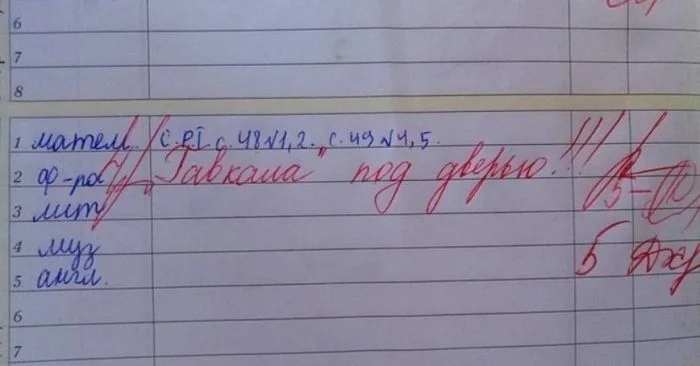 6
7
8
1 матем. С.РТ с. 48 №1,2. с. 49 №4, 5.
2 ф-ра "Гавкала" под дверью!!!
3 лит
4 муз
5 англ. 5
6
7